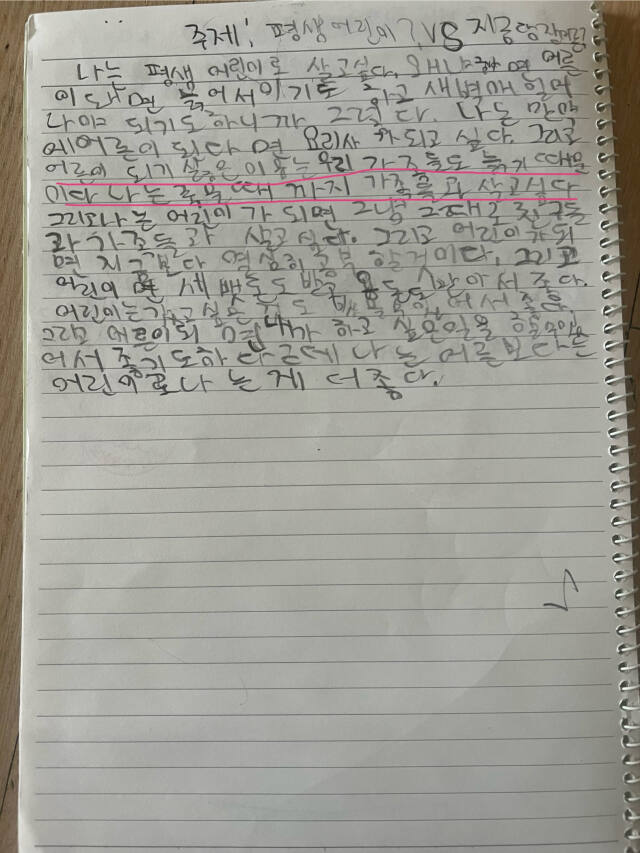 주제! 평생 어린이? VS 지금당장어른?
나는 평생 어린이로 살고싶다. 왜냐하면 어른
이 되면 늙어서이기도 하고 새벽에 일어
나야 되기도 하니까 그렇다. 나는 만약
에어른이 된다면 요리사가되고 싶다. 그리고
어른이 되기 싫은이유는우리 가족들도 늙기 때문
이다 나는 죽을때 까지 가족들과 살고싶다
그리고나는 어린이가 되면 그냥 그대로 친구들
과가족들과 살고 싶다. 그리고 어린이가되
면 지금보다 열심히 공부 할거이다. 그리고
어린이 세뱃돈도 받고 용돈도 받아서 좋다.
어린이는 싶은 도 있어서 좋다.
그리고 어린이 내가 하고 싶은일을
어서 좋기도하다근데 나는 어른보다는
어린이로나는게 더좋다.